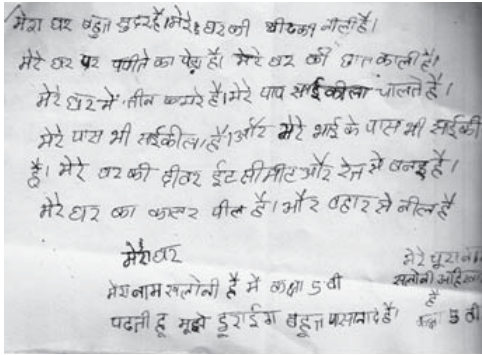 मेरा घर बहुत सुदर है। मेरे घर की खीटकी नीली है।
मेरे घर पर पपीते का पेड़ है। मेरे घर की छात काली है।
मेरे घर में तीन कमरे है। मेरे पाप साईकीला चालते है।
मेरे पास भी साईकील है। और मेरे भाई के पास भी साईकी
है। मेरे घर की दीवर ईट सीमीट और रेत से बनइ है।
मेरे घर का कलर पील है। और बहार से नील है
मेरा घर
मेरा नाम सलोनी है में कक्षा 5 वी
पढती हू मूझे डूराईग बहूत पासानद है।
मेरे पूरा नाम
सलोनी
है
कक्षा 5 वी